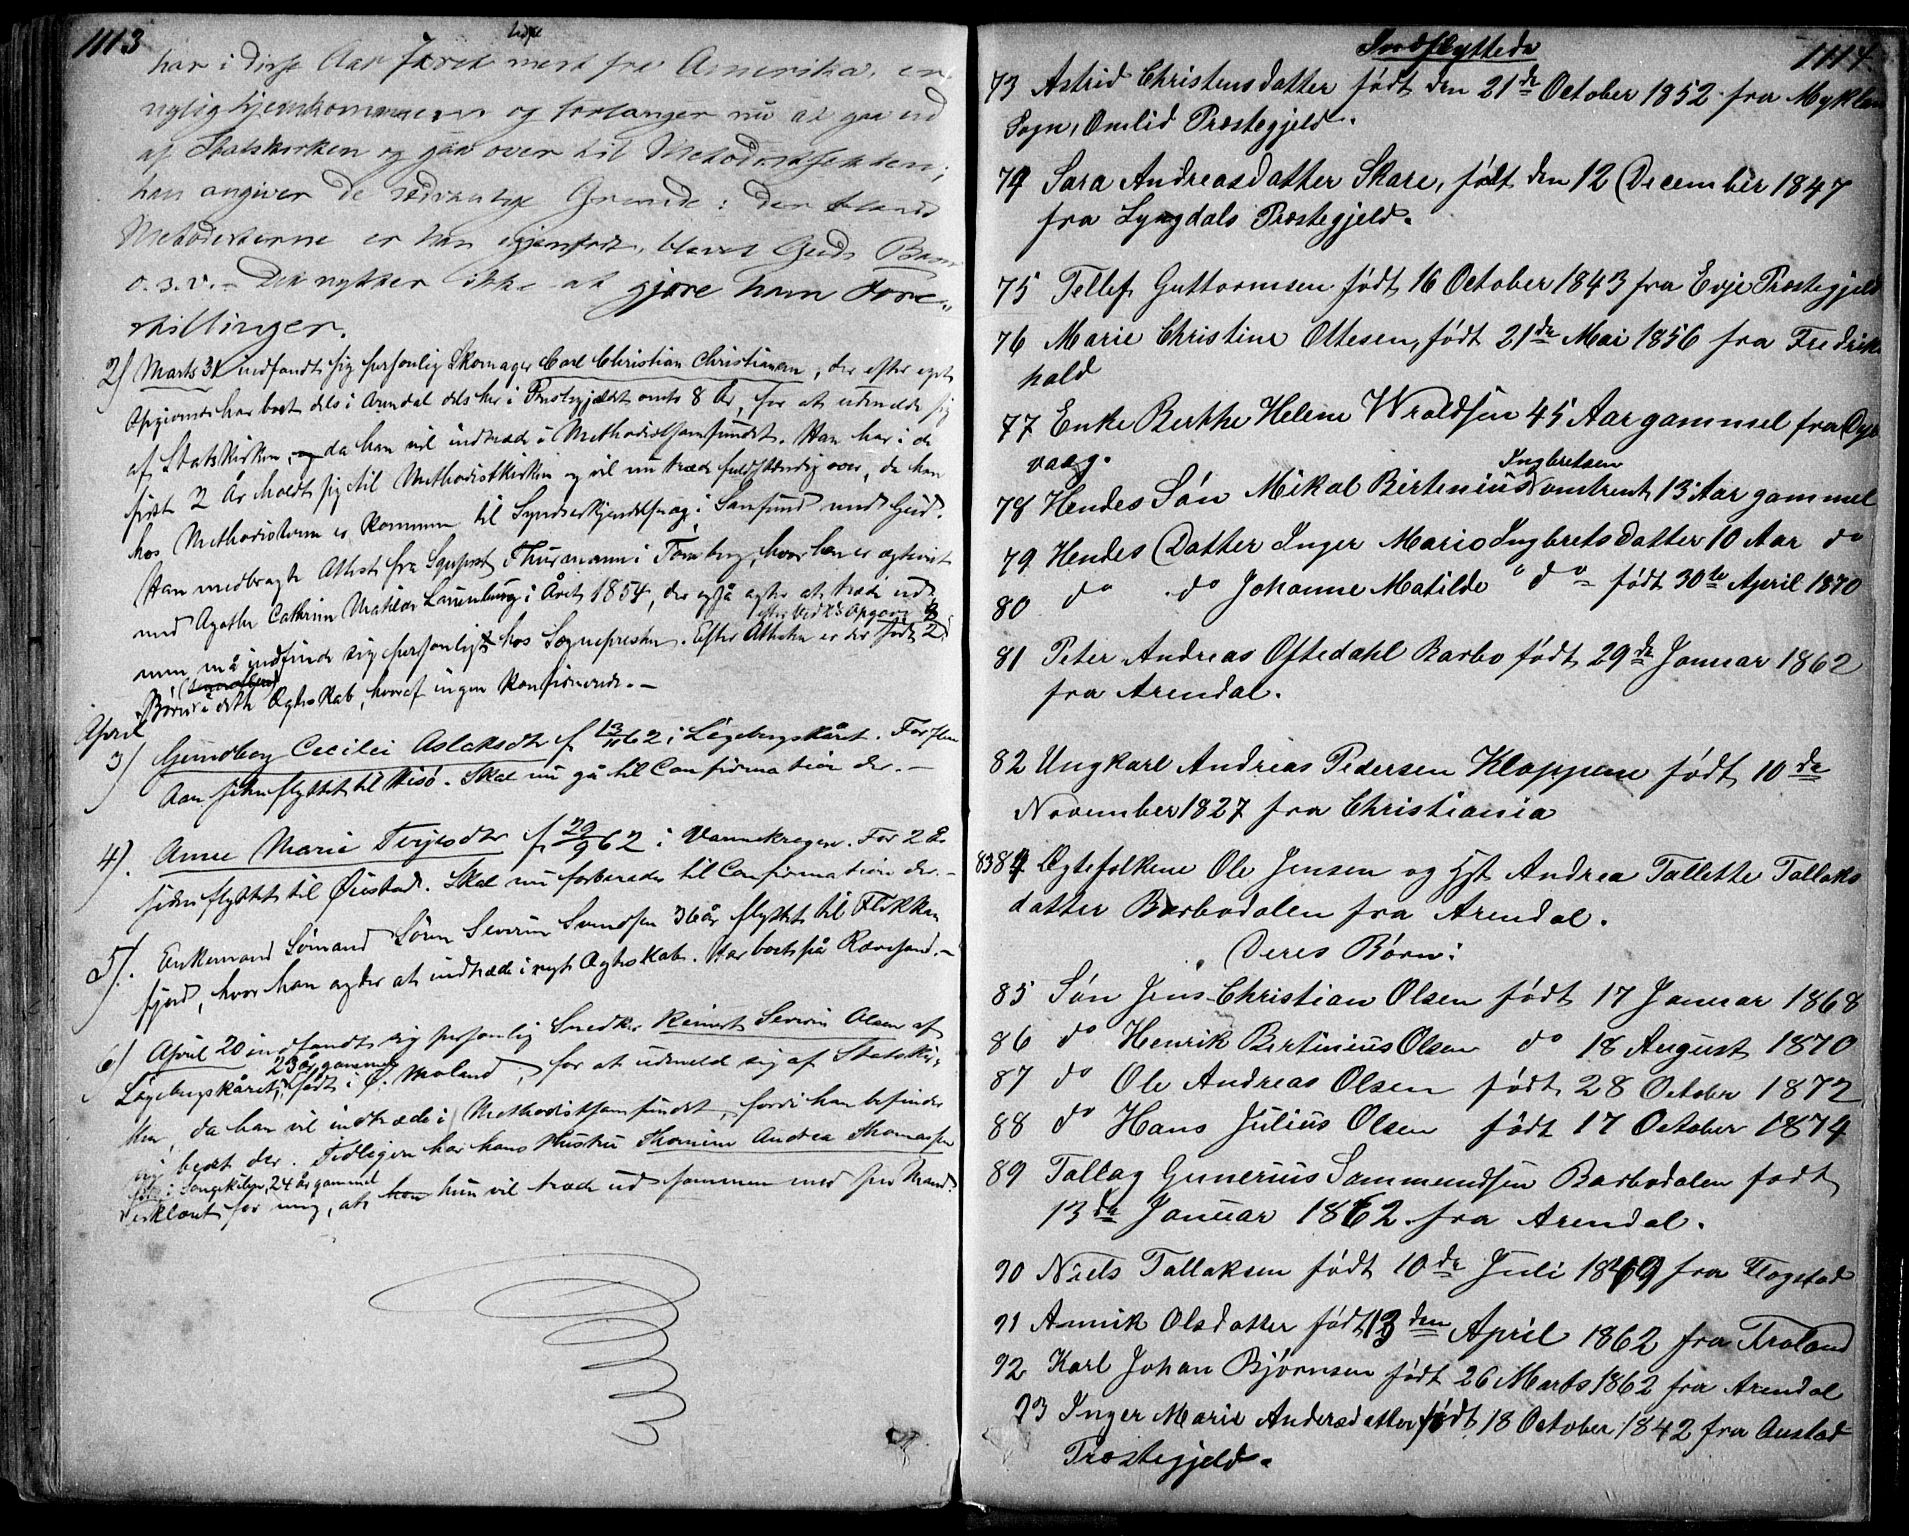 1113
har i disse Aar færdes mest fra Amerika, er
nylig hjemkommen og forlanger nu at gaa ud
af Statskirken og gaa over til Methodistsekten;
han angiver de sædvanlige Grunde: Der blandt
Methodisterne er han igjenfødt, blevet Guds Barn
o.s.v. – Det nytter ikke at gjøre ham Fore-
stillinger.
2) Marts 31 indfandt sig personlig Skomager Carl Christian Christiansen, der efter eget
Opgivende har boet dels i Arendal dels her i Præstegjeldet omtr 8 År, for at udmelde sig
af Statskirken, da han vil indtræde i Methodistsamfundet. Han har i de
sidste 2 År holdt sig til Methodistkirken og vil nu træde fuldstændig over, da han
hos Methodisterne er kommen til Syndserkjendelse og i Samfund med Gud.
Han medbragte Attest fra Sgnprst Thurmann i Tønsberg, hvor han er ægteviet
med Agathe Cathrine Matilde Lauenburg i Året 1854, der også agter at træde ud
efter Vedk's Opgave
men må indfinde sig personligt hos Sognepresten. Efter Attesten er der født 2
Børn i dette Ægteskab, hvoraf ingen konfirmerede. –
April
3) Gundborg Cecilie Aslaksdtr f 13/11 62 i Løgebergskåret. For flere
Aar siden flyttet til Hisø. Skal nu gå til Confirmation der. –
4). Anne Marie Terjesdtr f 29/9 62 i Vannekregen. For 2 År
siden flyttet til Øiestad. Skal nu forberedes til Confirmation der. –
5). Enkemand Sømand Søren Severin Svendsen 36 år flyttet til Flekke
fjord, hvor han agter at indtræde i nyt Ægteskab. Har boet på Rævesand. –
6) April 20 indfandt sig personlig Snedker Reinert Severin Olsen af
23 år gammel
Løgebergskåret, født i Ø. Moland, for at udmelde sig af Statskir-
ken, da han vil indtræde i Methodistsamfundet, fordi han befinder
sig bedst der. Tidligere har hans Hustru Thomine Andrea Thomassen
født i Songekilen, 24 år gammel
erklæret for mig, at hun vil træde ud sammen med sin Mand.
Indflyttede
1114
73 Astrid Christensdatter født den 21de October 1852 fra Myklan
Sogn, Omlid Præstegjeld.
74 Sara Andreasdatter Skare, født den 12 December 1847
fra Lyngdals Præstegjeld.
75 Tellef Guttormsen født 16 October 1843 fra Evje Præstegjeld
76 Marie Christine Ottesen, født 21de Mai 1856 fra Fredriks
hald
77 Enke Berthe Helene Wroldsen 45 Aar gammel fra Dyb
vaag.
Ingbretsen
78 Hendes Søn Mikal Birtenius Nomtrent 13 Aar gammel
79 Hendes Datter Inger Marie Ingbretsdatter 10 Aar do
80 do do Johanne Matilde " do født 30te April 1870
81 Peter Andreas Oftedahl Barbo født 29de Januar 1862
fra Arendal.
82 Ungkarl Andreas Pedersen Kloppene født 10de
November 1827 fra Christiania
83 84 Ægtefolkene Ole Jensen og Hst Andrea Tallette Tallaks
datter Barbodalen fra Arendal.
Deres Børn:
85 Søn Jens Christian Olsen født 17 Januar 1868
86 do Henrik Bertinius Olsen do 18 August 1870
87 do Ole Andreas Olsen født 28 October 1872
88 do Hans Julius Olsen født 17 October 1874
89 Tallag Gunerius Sammundsen Barbodalen født
13de Januar 1862 fra Arendal.
90 Niels Tallaksen født 10de Juli 1849 fra Flogstad
91 Annik Olsdatter født 13den April 1862 fra Froland
92 Karl Johan Bjørnsen født 26 Marts 1862 fra Arendal
93 Inger Marie Andersdatter født 18 October 1842 fra Austad
Præstegjeld.